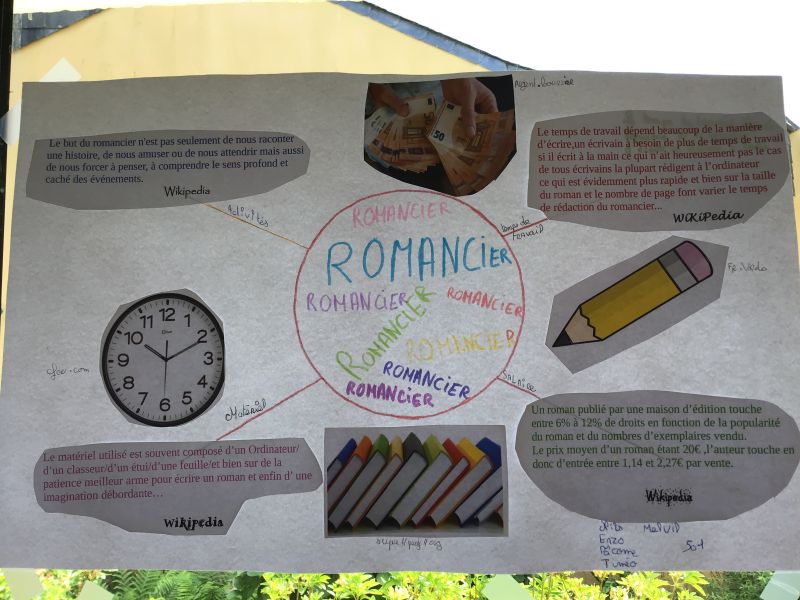 Le but du romancier n'est pas seulement de nous raconter
une histoire, de nous amuser ou de nous attendrir mais aussi
de nous forcer à penser, à comprendre le sens profond et
caché des événements.
Wikipedia
Activités
50
Le temps de travail dépend beaucoup de la manière
d'écrire,un écrivain à besoin de plus de temps de travail
si il écrit à la main ce qui n'ait heureusement pas le cas
de tous écrivains la plupart rédigent à l'ordinateur
ce qui est évidemment plus rapide et bien sur la taille
du roman et le nombre de page font varier le temps
de rédaction du romancier...
WiKiPedia
temps de
travail
ROMANCIER
ROMANCIER
ROMANCIER
ROMANCIER
ROMANCIER
ROMANCIER
ROMANCIER
ROMANCIER
12
11 1
10 2
9 3
8 4
7 5
6
Matériel
SALAIRE
Le matériel utilisé est souvent composé d'un Ordinateur/
d'un classeur/d'un étui/d'une feuille/et bien sur de la
patience meilleur arme pour écrire un roman et enfin d' une
imagination débordante…
Wikipedia
Un roman publié par une maison d'édition touche
entre 6% à 12% de droits en fonction de la popularité
du roman et du nombres d'exemplaires vendu.
Le prix moyen d'un roman étant 20€ ,l'auteur touche en
donc d'entrée entre 1,14 et 2,27€ par vente.
Wikipedia
Enzo
Timeo